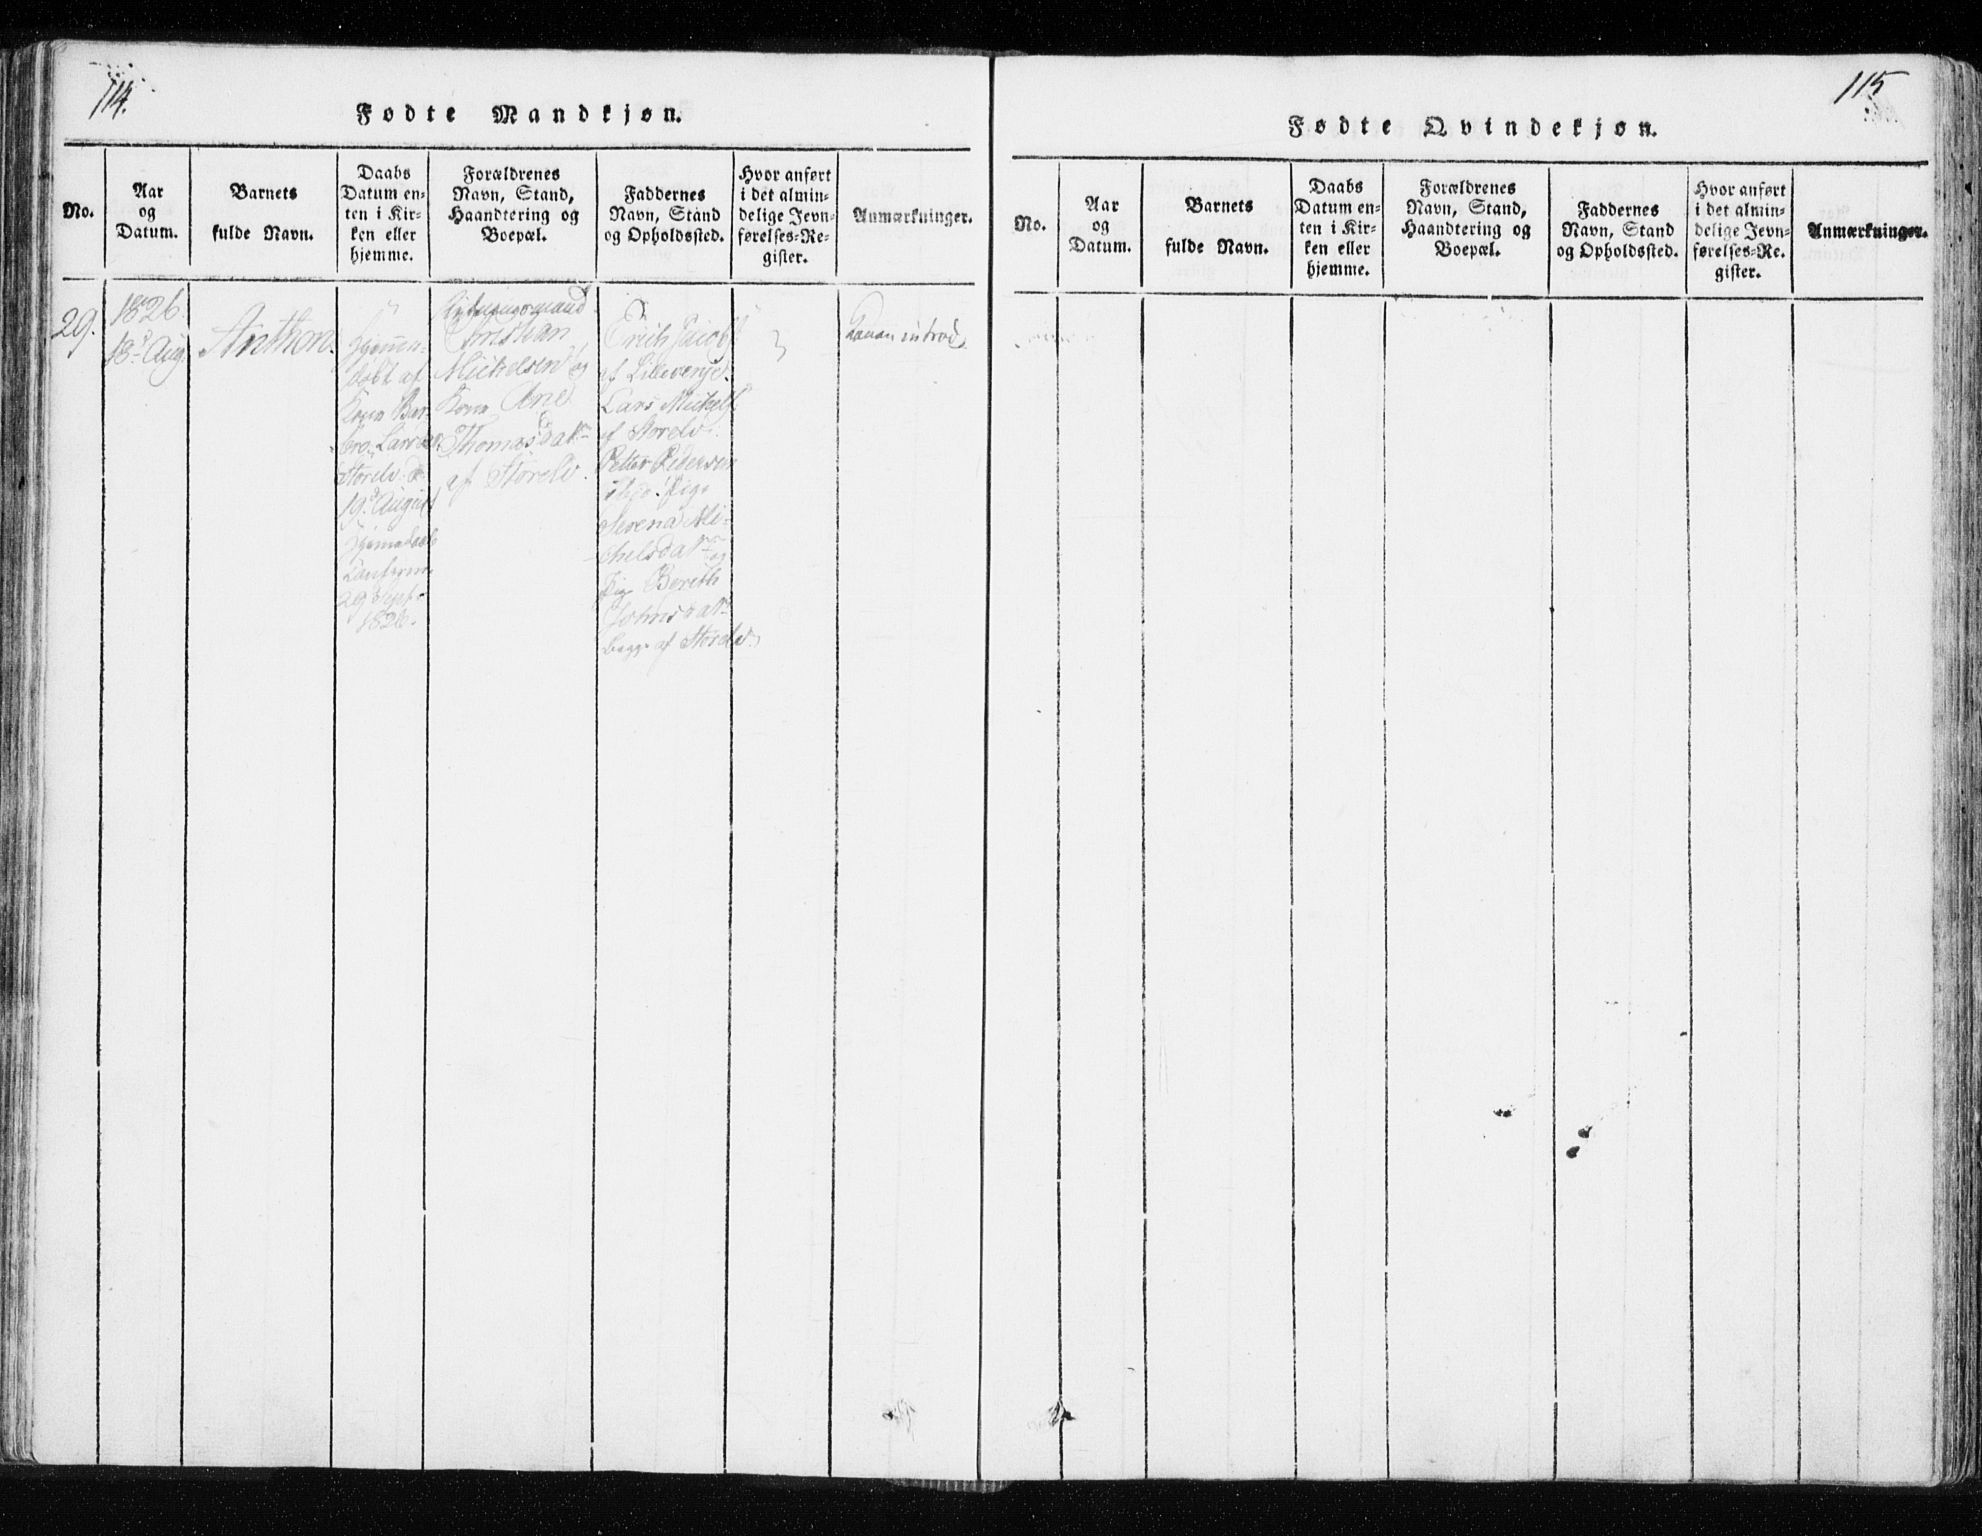 114.
Fødte Mandkjøn.
No.
Aar
og
Datum.
Barnets
fulde Navn.
Daabs
Datum en-
ten i Kir-
ken eller
hjemme.
Forældrenes
Navn, Stand,
Haandtering og
Boepæl.
Faddernes
Navn, Stand
og Opholdssted.
Hvor anført
i det almin-
delige Jevn-
førelses-Re-
gister.
Anmærkninger.
29.
1826.
18d Aug.
Anthon.
døbt af
Kone
Storelv d.
19d August
29 Sept.
1826.
Christian
Michelsen og
Kone Ane
Thomasdatr
af Storelv.
Erich Jacobs
af
Lars Michels
af Storelv.
Petter Pedersen
Pige
Serena Mi-
chelsdatr og
Pige Berith
Johnsdatr
begge af Storelv
Konen introd.
115
Fødte Qvindekjøn.
No.
Aar
og
Datum.
Barnets
fulde Navn.
Daabs
Datum en-
ten i Kir-
ken eller
hjemme.
Forældrenes
Navn, Stand,
Haandtering og
Boepæl.
Faddernes
Navn, Stand
og Opholdssted.
Hvor anført
i det almin-
delige Jevn-
førelses-Re-
gister.
Anmærkninger.